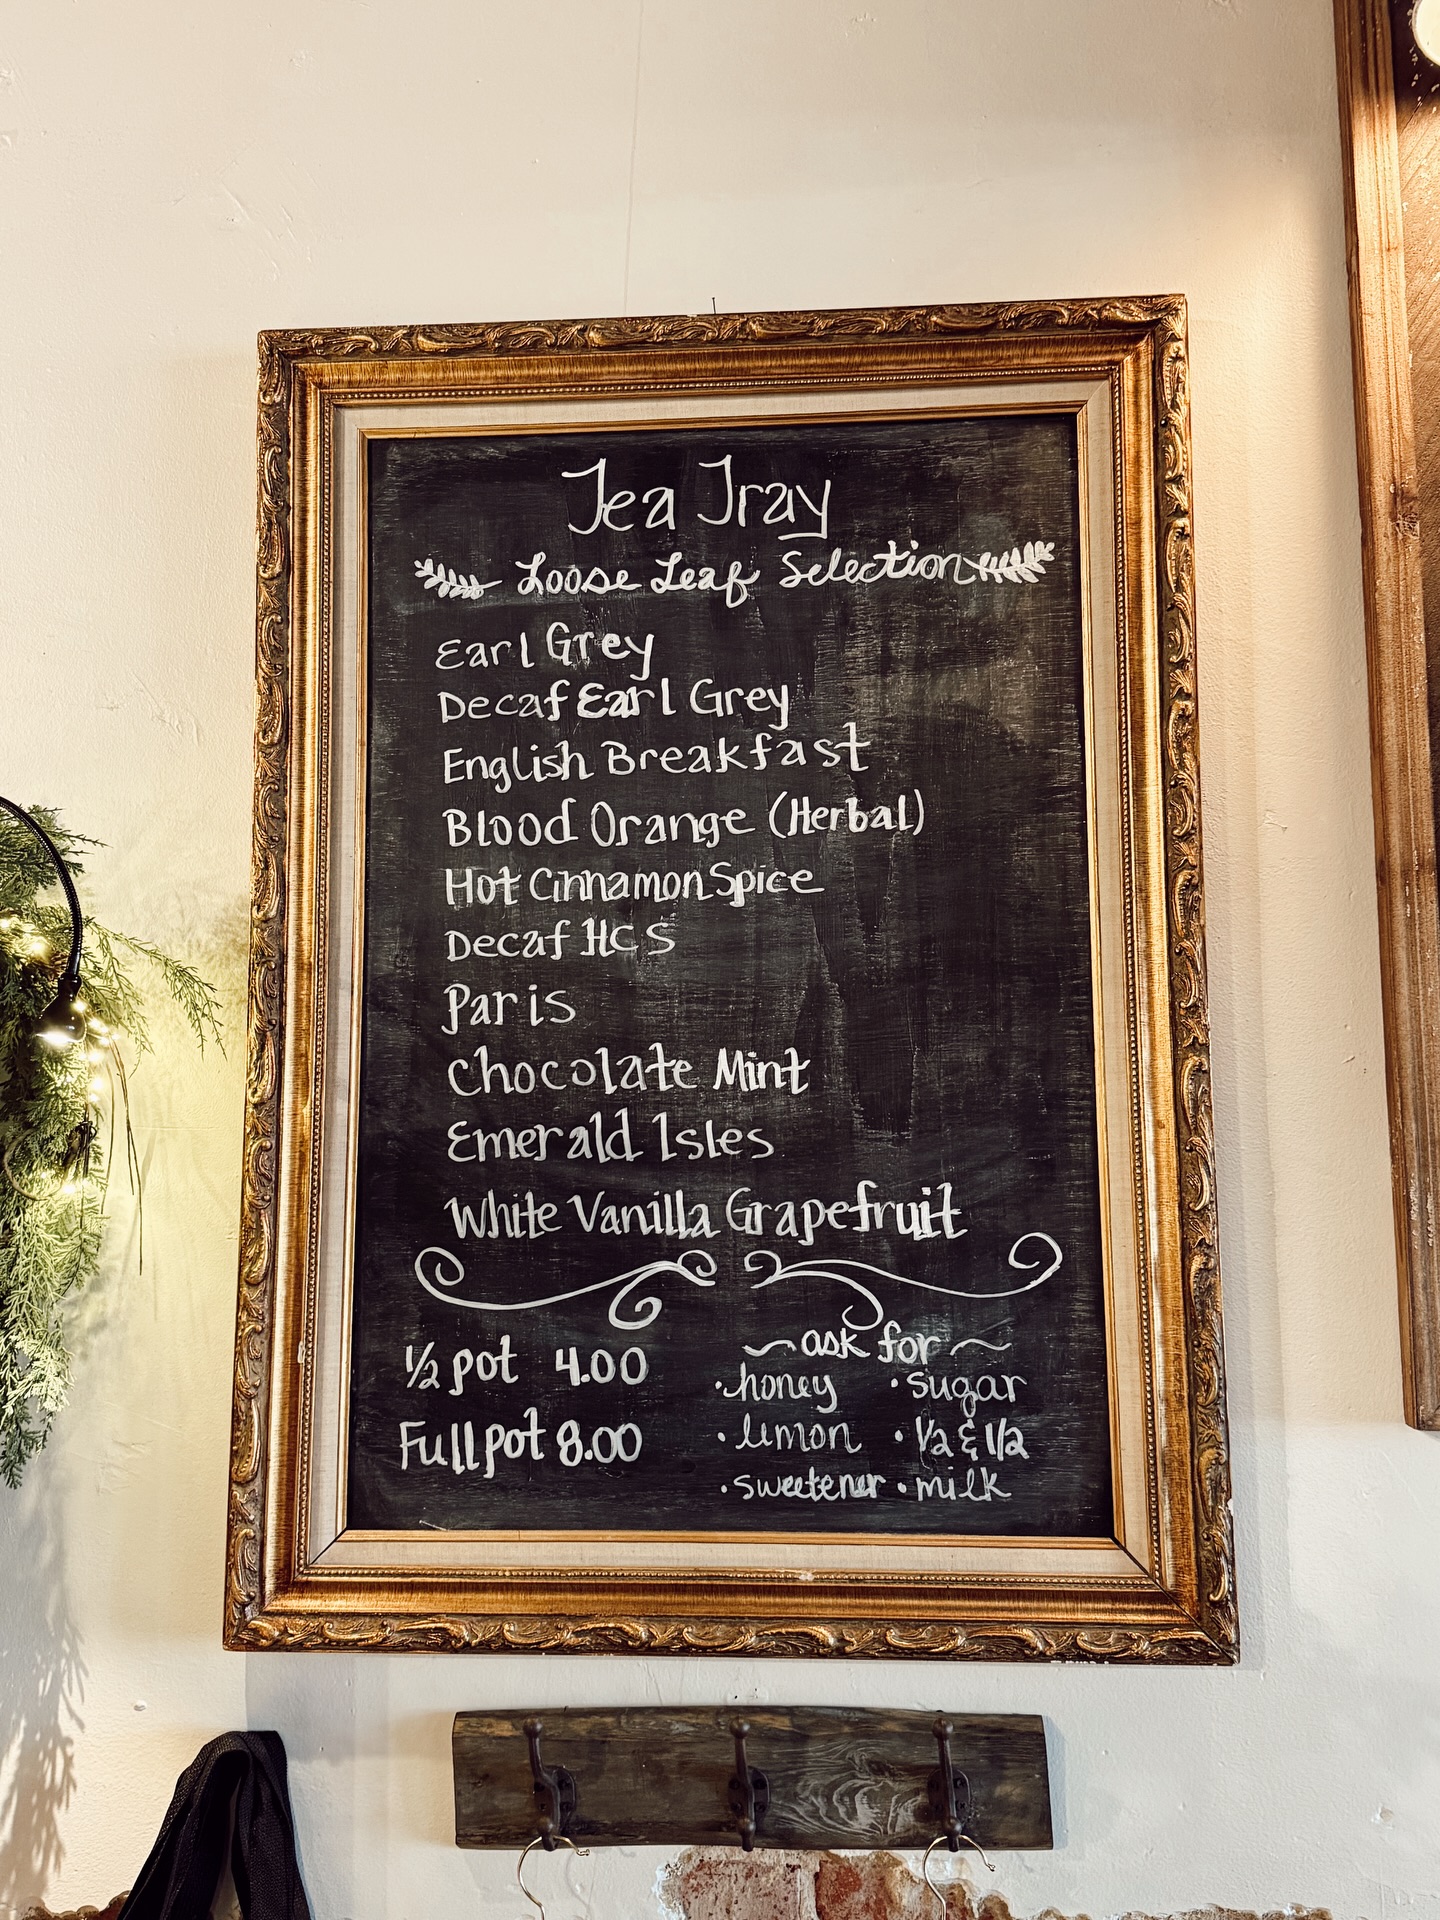 Tea Tray
Loose Leaf Selection
Earl Grey
Decaf Earl Grey
English Breakfast
Blood Orange (Herbal)
Hot Cinnamon Spice
Decaf HCS
Paris
Chocolate Mint
Emerald Isles
White Vanilla Grapefruit
1/2 pot 4.00
Full pot 8.00
~ask for~
·honey ·sugar
·lemon ·1/2 & 1/2
·sweetener ·milk